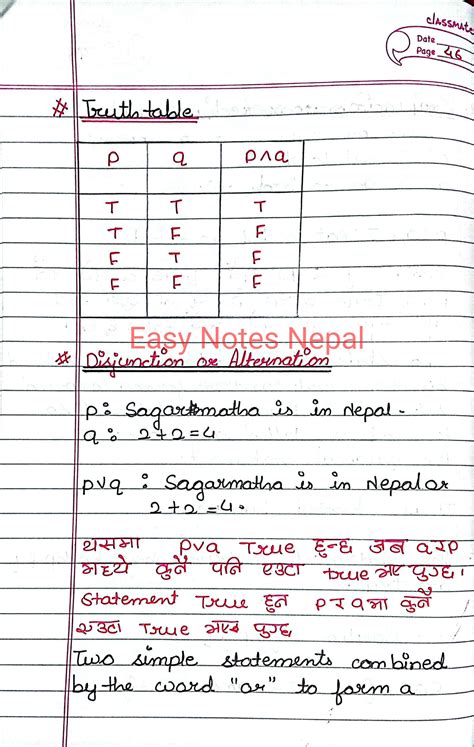 classmate
Date
Page 46
# Truth table
p q p∧q
T T T
T F F
F T F
F F F
Easy Notes Nepal
# Disjunction or Alternation
p: Sagarmatha is in Nepal.
q: 2+2=4
p∨q : Sagarmatha is in Nepal or
2+2=4.
यसमा p∨q True हुन्छ जब q र p
मध्ये कुनै पनि एउटा true भए पुग्छ।
Statement True हुन p र q मा कुनै
एउटा True भए पुग्छ
Two simple statements combined
by the word "or" to form a